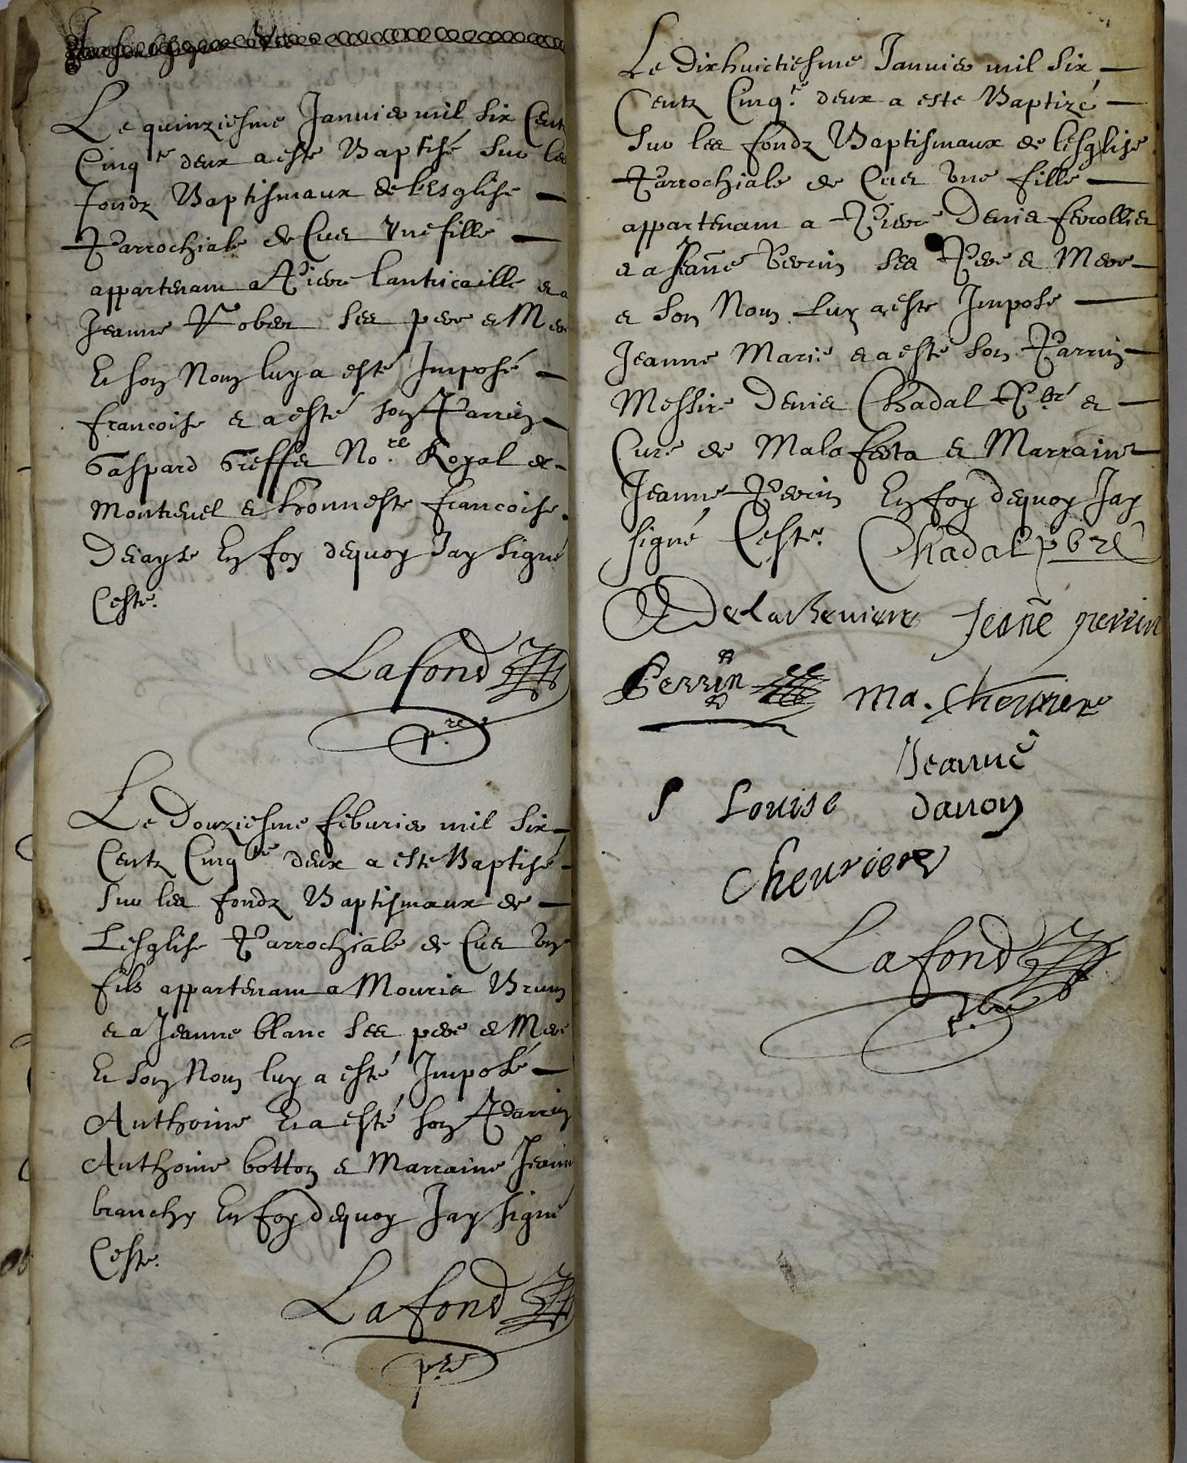 Le quinziesme Janvier mil six Cent
Cinq.te deux a este Baptisé sur les
fondz Baptismaux de lEsglise
Parrochiale de Cuet Une fille
appartenant a Pierre Lantricaille et a
Jeanne Rober ses pere et Mere
Et son Nom luy a esté Imposé
francoise et a esté son Parrin
Gaspard Greffet No.re Royal de
Montrevel et honneste francoise
En foy dequoy Jay signé
Ceste.
Lafond
p.re
Le Douziesme feburier mil six
Centz Cinq.te deux a este Baptisé
sur les fondz Baptismaux de
Lesglise Parrochiale de Cuet Un
fils appartenant a Mouris Brun
et a Jeanne blanc ses pere et Mere
Et son Nom luy a esté Imposé
Anthoine Et a esté son Parrin
Anthoine botton et Marraine Jeanne
branchy En foy dequoy Jay signé
Ceste.
Lafond
p.re
Le Dixhuictiesme Janvier mil six
Centz Cinq.te deux a este Baptizé
sur les fondz Baptismaux de lesglise
Parrochiale de Cuet Une fille
appartenant a Pierre Denis ferrollier
et a Jeañe Perrin ses Pere et Mere
et son Nom Luy a este Impose
Jeanne Marie et a esté son Parrin
Messire Denis Chadal Pbre et
Curé de Malafreta et Marraine
Jeanne Perrin En foy dequoy Jay
signé Ceste. Chadal pbre
Jeañe perrin
Perrin Ma. Chevriere
Jeanne
S Louise danon
Chevriere
Lafond
p.re